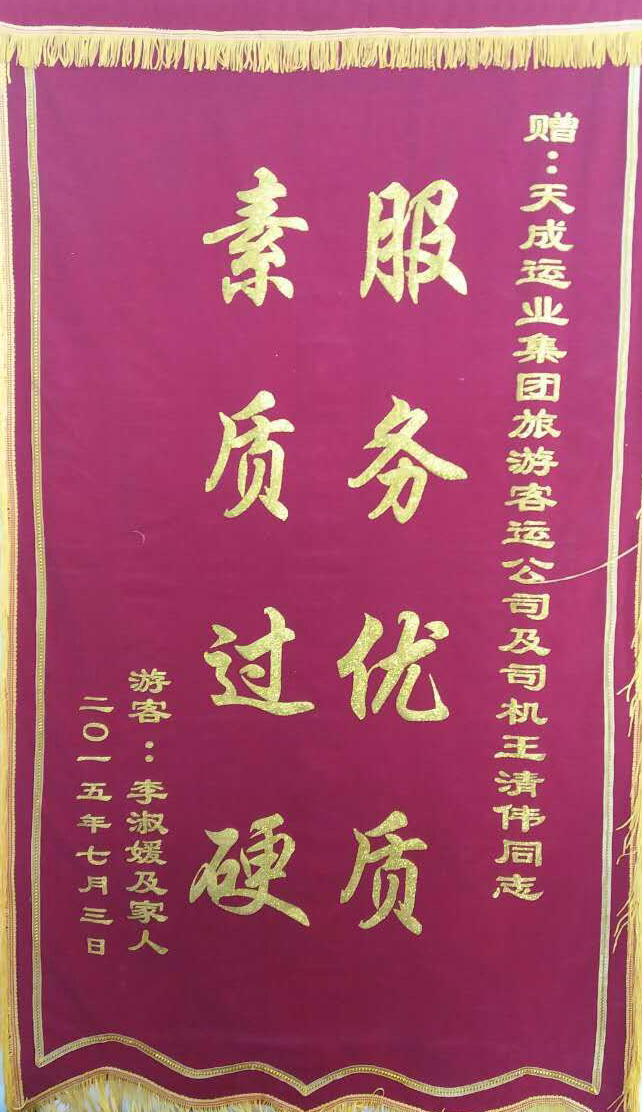 赠：天成运业集团旅游客运公司及司机王清伟同志
服务优质
素质过硬
游客：李淑媛及家人
二〇一五年七月三日